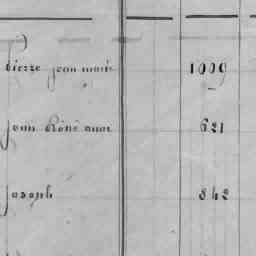 pierre jean marie 1009
jean Réné marc 621
joseph 842